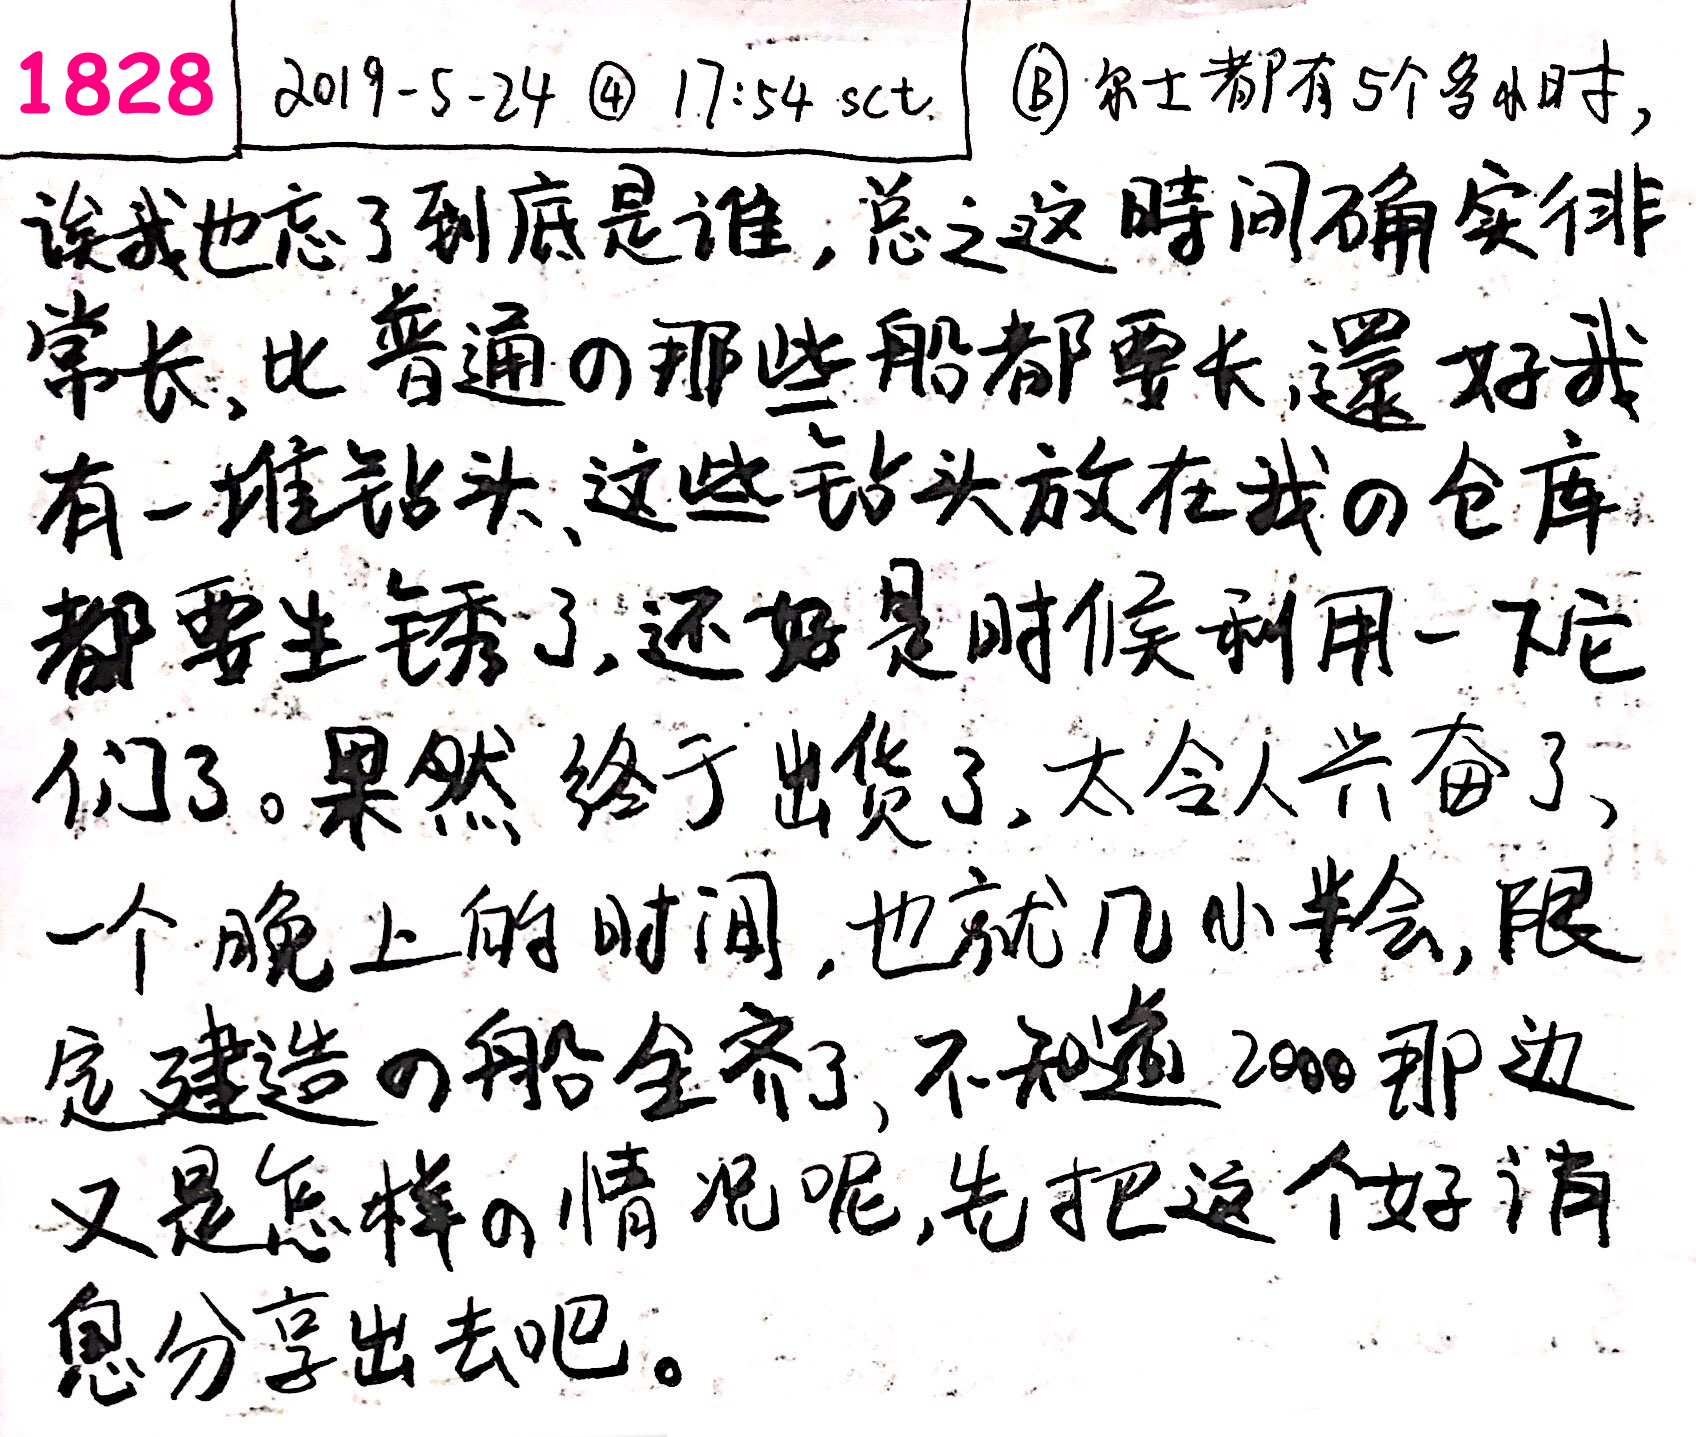 1828 2019-5-24 ④ 17:54 sct. Ⓑ 尔士都有5个多小时，
诶我也忘了到底是谁，总之这時间确实徘
常长、比普通の那些船都要长，還好我
有一堆钻头、这些钻头放在我の仓库
都要生锈了，还好是时候利用一下它
们了。果然终于出货了、太令人兴奋了、
一个晚上的时间，也就几小半会，限
定建造の船全齐了，不知道2000那边
又是怎样の情况呢，先把这个好消
息分享出去吧。